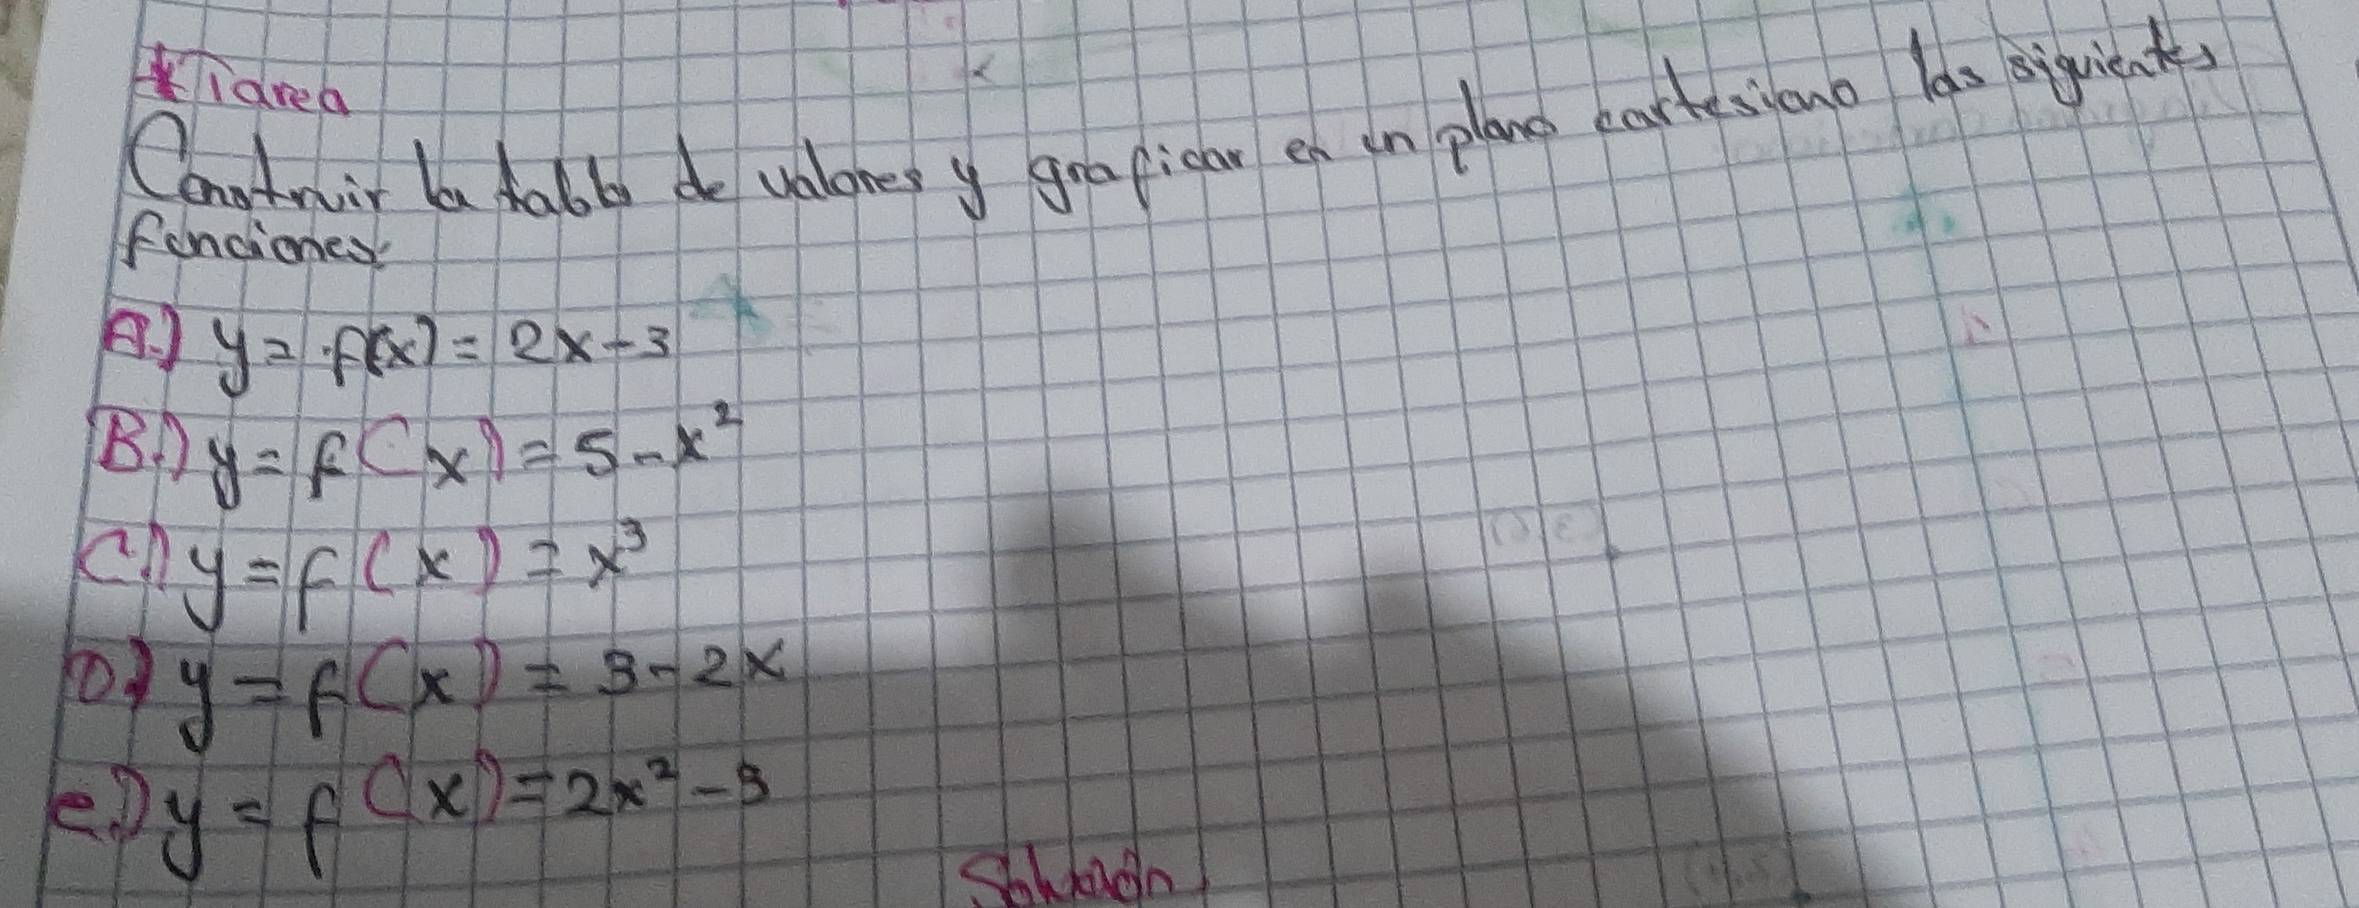 * Tarea
Construir la tabla de valores y graficar en un plano cartesiano las siguientes
funciones
A.) y = f(x) = 2x - 3
B.) y = f(x) = 5 - x²
C.) y = f(x) = x³
D.) y = f(x) = 3 - 2x
e.) y = f(x) = 2x² - 3
Solución